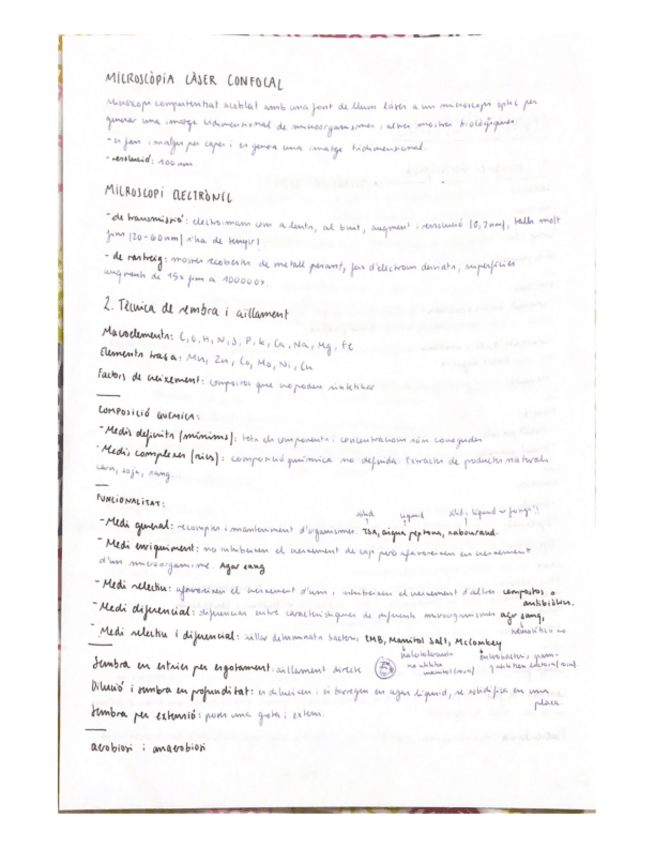 MICROSCÒPIA LÀSER CONFOCAL
Microscopi computeritzat acoblat amb una font de llum làser a un microscopi òptic per
generar una imatge tridimensional de microorganismes i altres mostres biològiques.
- es fan imatges per capes i es genera una imatge tridimensional.
- resolució: 100 nm.
MICROSCOPI ELECTRÒNIC
- de transmissió: electroimam com a lents, al buit, augment i resolució (0,2nm), talls molt
fins (20-60nm) s'ha de tenyir!
- de rastreig: mostres recobertes de metall pesant, feix d'electrons desviats, superfícies
augments de 15x fins a 100000x.
2. Tècnica de sembra i aïllament
Macroelements: C, O, H, N, S, P, K, Ca, Na, Mg, Fe
Elements traça: Mn, Zn, Co, Mo, Ni, Cu
Factors de creixement: compostos que no poden sintetitzar
COMPOSICIÓ QUÍMICA:
- Medis definits (mínims): tots els components i concentracions són conegudes
- Medis complexes (rics): composició química no definida. Extractes de productes naturals
carn, soja, sang.
FUNCIONALITAT:
sòlid líquid
- Medi general: recomptes i manteniment d'organismes. TSA, aigua peptona, sabouraud.
- Medi enriquiment: no inhibeixen el creixement de cap però afavoreixen el creixement
d'un microorganisme. Agar sang
- Medi selectiu: afavoreixen el creixement d'uns i inhibeixen el creixement d'altres. compostos o
antibiòtics.
- Medi diferencial: diferencien entre característiques de diferents microorganismes agar sang,
hemolítics o no
- Medi selectiu i diferencial: aïllar determinats bacteris, EMB, Manitol Salt, McConkey
halotolerants
enterobacteris, gram-
Sembra en estries per esgotament: aïllament directe
Dilució i sembra en profunditat: es dilueixen i es barregen en agar líquid, se solidifica en una
placa
Sembra per extensió: posem una gota i extem.
aerobiosi i anaerobiosi